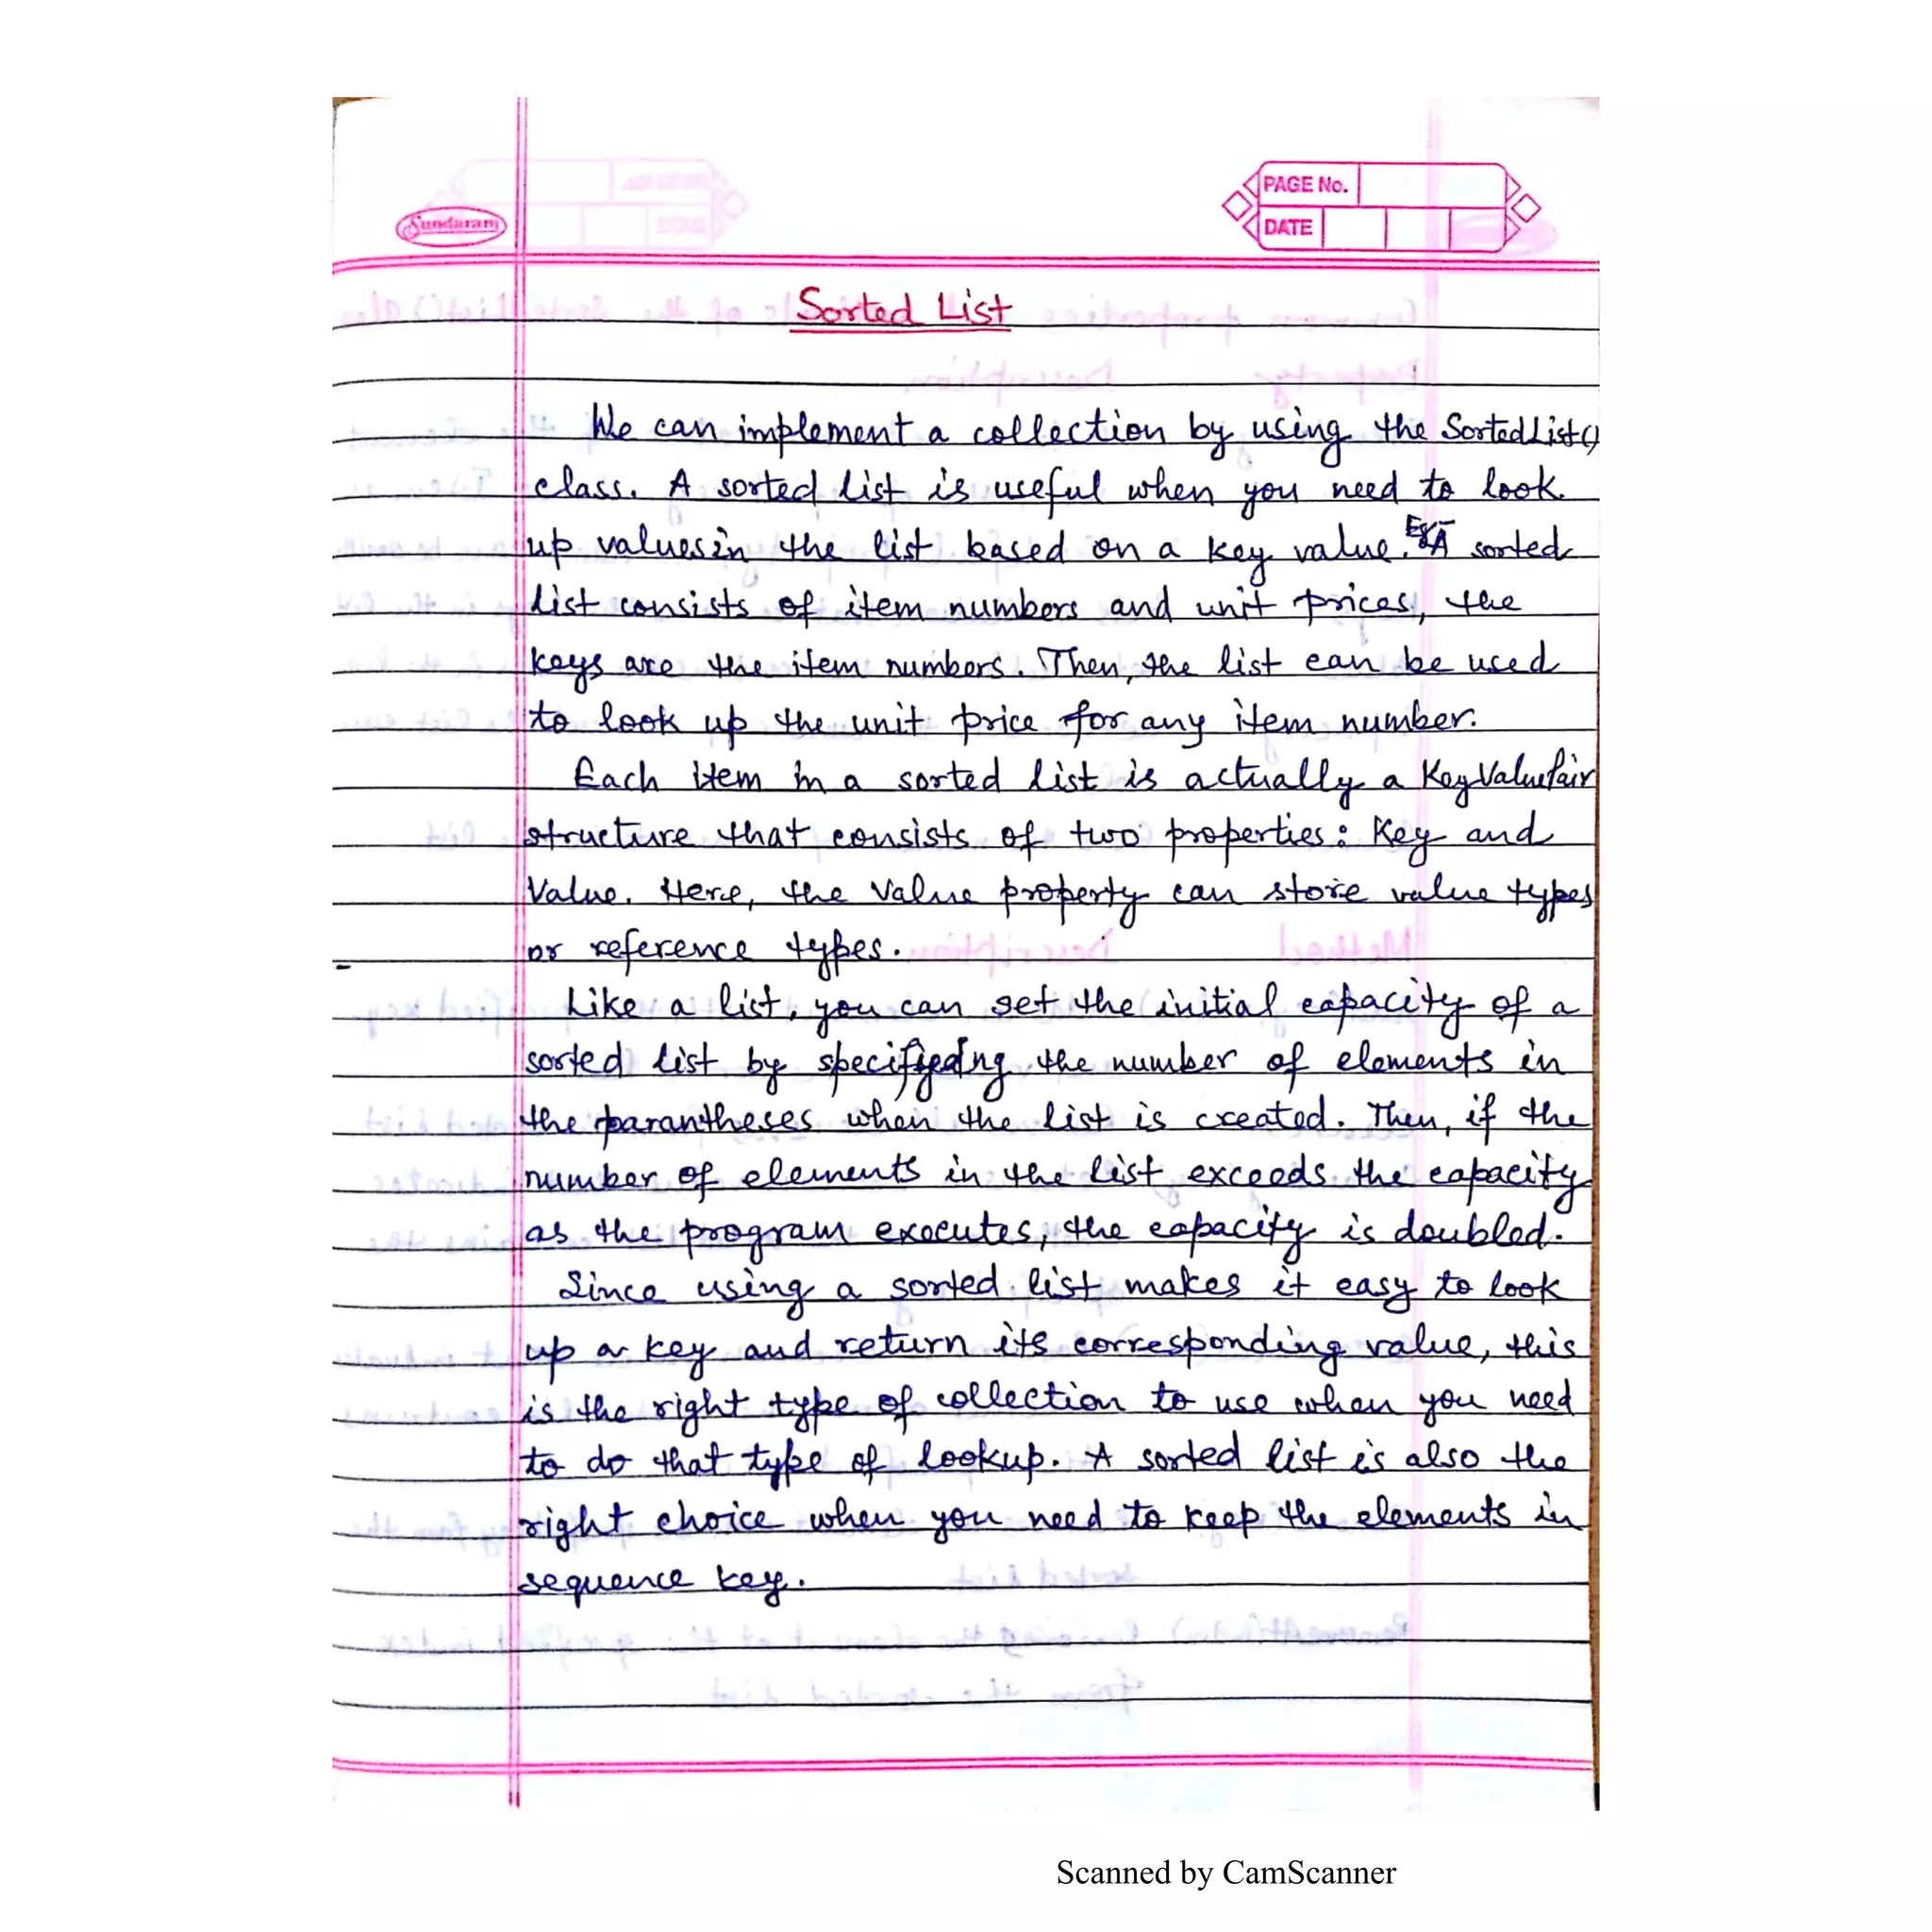 Sundaram
PAGE No.
DATE
Sorted List
We can implement a collection by using the SortedList()
class. A sorted list is useful when you need to look
up values in the list based on a key value. Eg- A sorted
list consists of item numbers and unit prices, the
keys are the item numbers. Then, the list can be used
to look up the unit price for any item number.
Each item in a sorted list is actually a KeyValuePair
structure that consists of two properties: Key and
Value. Here, the Value property can store value types
or reference types.
Like a list, you can set the initial capacity of a
sorted list by specifying the number of elements in
the parantheses when the list is created. Then, if the
number of elements in the list exceeds the capacity
as the program executes, the capacity is doubled.
Since using a sorted list makes it easy to look
up a key and return its corresponding value, this
is the right type of collection to use when you need
to do that type of lookup. A sorted list is also the
right choice when you need to keep the elements in
sequence key.
Scanned by CamScanner